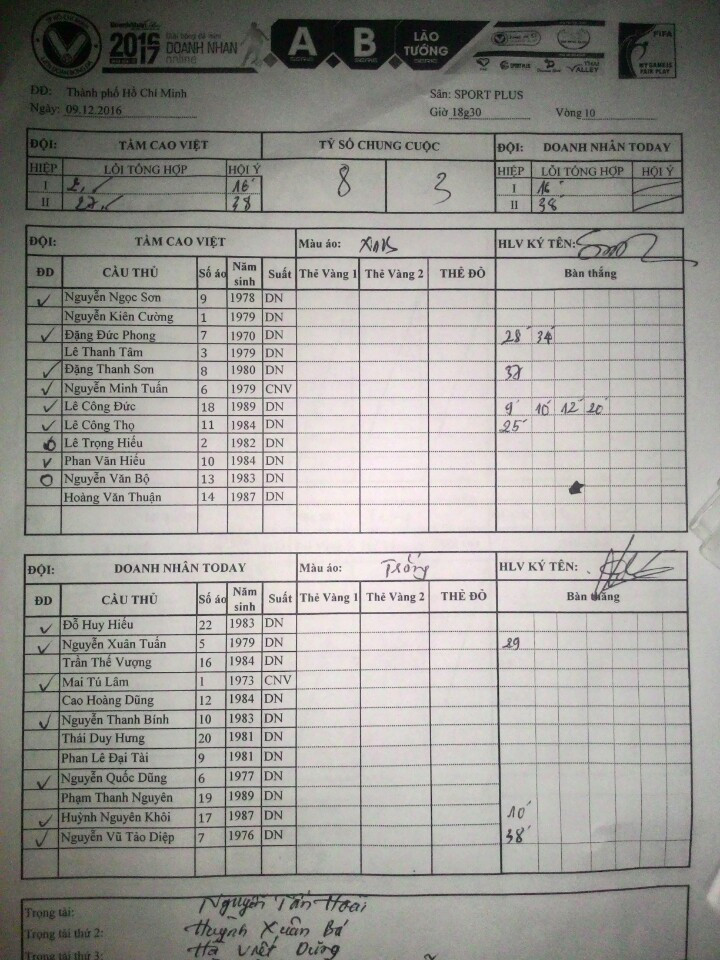 2016
2017 DOANH NHAN
online
A B LÃO TƯỚNG
FIFA
MY GAME IS FAIR PLAY
ĐĐ: Thành phố Hồ Chí Minh Sân: SPORT PLUS
Ngày: 09.12.2016 Giờ 18g30 Vòng 10
ĐỘI: TẦM CAO VIỆT TỶ SỐ CHUNG CUỘC ĐỘI: DOANH NHÂN TODAY
HIỆP LỖI TỔNG HỢP HỘI Ý 8 3 HIỆP LỖI TỔNG HỢP HỘI Ý
I 2, 16' I 16'
II 27, 38 II 38'
ĐỘI: TẦM CAO VIỆT Màu áo: XANH HLV KÝ TÊN:
ĐD CẦU THỦ Số áo Năm sinh Suất Thẻ Vàng 1 Thẻ Vàng 2 THẺ ĐỎ Bàn thắng
Nguyễn Ngọc Sơn 9 1978 DN
Nguyễn Kiên Cường 1 1979 DN
Đặng Đức Phong 7 1970 DN 28' 34'
Lê Thanh Tâm 3 1979 DN
Đặng Thanh Sơn 8 1980 DN 37
Nguyễn Minh Tuấn 6 1979 CNV
Lê Công Đức 18 1989 DN 9' 10' 12' 20'
Lê Công Thọ 11 1984 DN 25'
Lê Trọng Hiếu 2 1982 DN
Phan Văn Hiếu 10 1984 DN
Nguyễn Văn Bộ 13 1983 DN
Hoàng Văn Thuận 14 1987 DN
ĐỘI: DOANH NHÂN TODAY Màu áo: Trắng HLV KÝ TÊN:
ĐD CẦU THỦ Số áo Năm sinh Suất Thẻ Vàng 1 Thẻ Vàng 2 THẺ ĐỎ Bàn thắng
Đỗ Huy Hiếu 22 1983 DN
Nguyễn Xuân Tuấn 5 1979 DN 29
Trần Thế Vượng 16 1984 DN
Mai Tú Lâm 1 1973 CNV
Cao Hoàng Dũng 12 1984 DN
Nguyễn Thanh Bính 10 1983 DN
Thái Duy Hưng 20 1981 DN
Phan Lê Đại Tài 9 1981 DN
Nguyễn Quốc Dũng 6 1977 DN
Phạm Thanh Nguyên 19 1989 DN
Huỳnh Nguyên Khôi 17 1987 DN 10'
Nguyễn Vũ Tảo Diệp 7 1976 DN 38'
Trọng tài: Nguyễn Tấn Hoài
Trọng tài thứ 2: Huỳnh Xuân Bá
Trọng tài thứ 3: Hà Viết Dũng